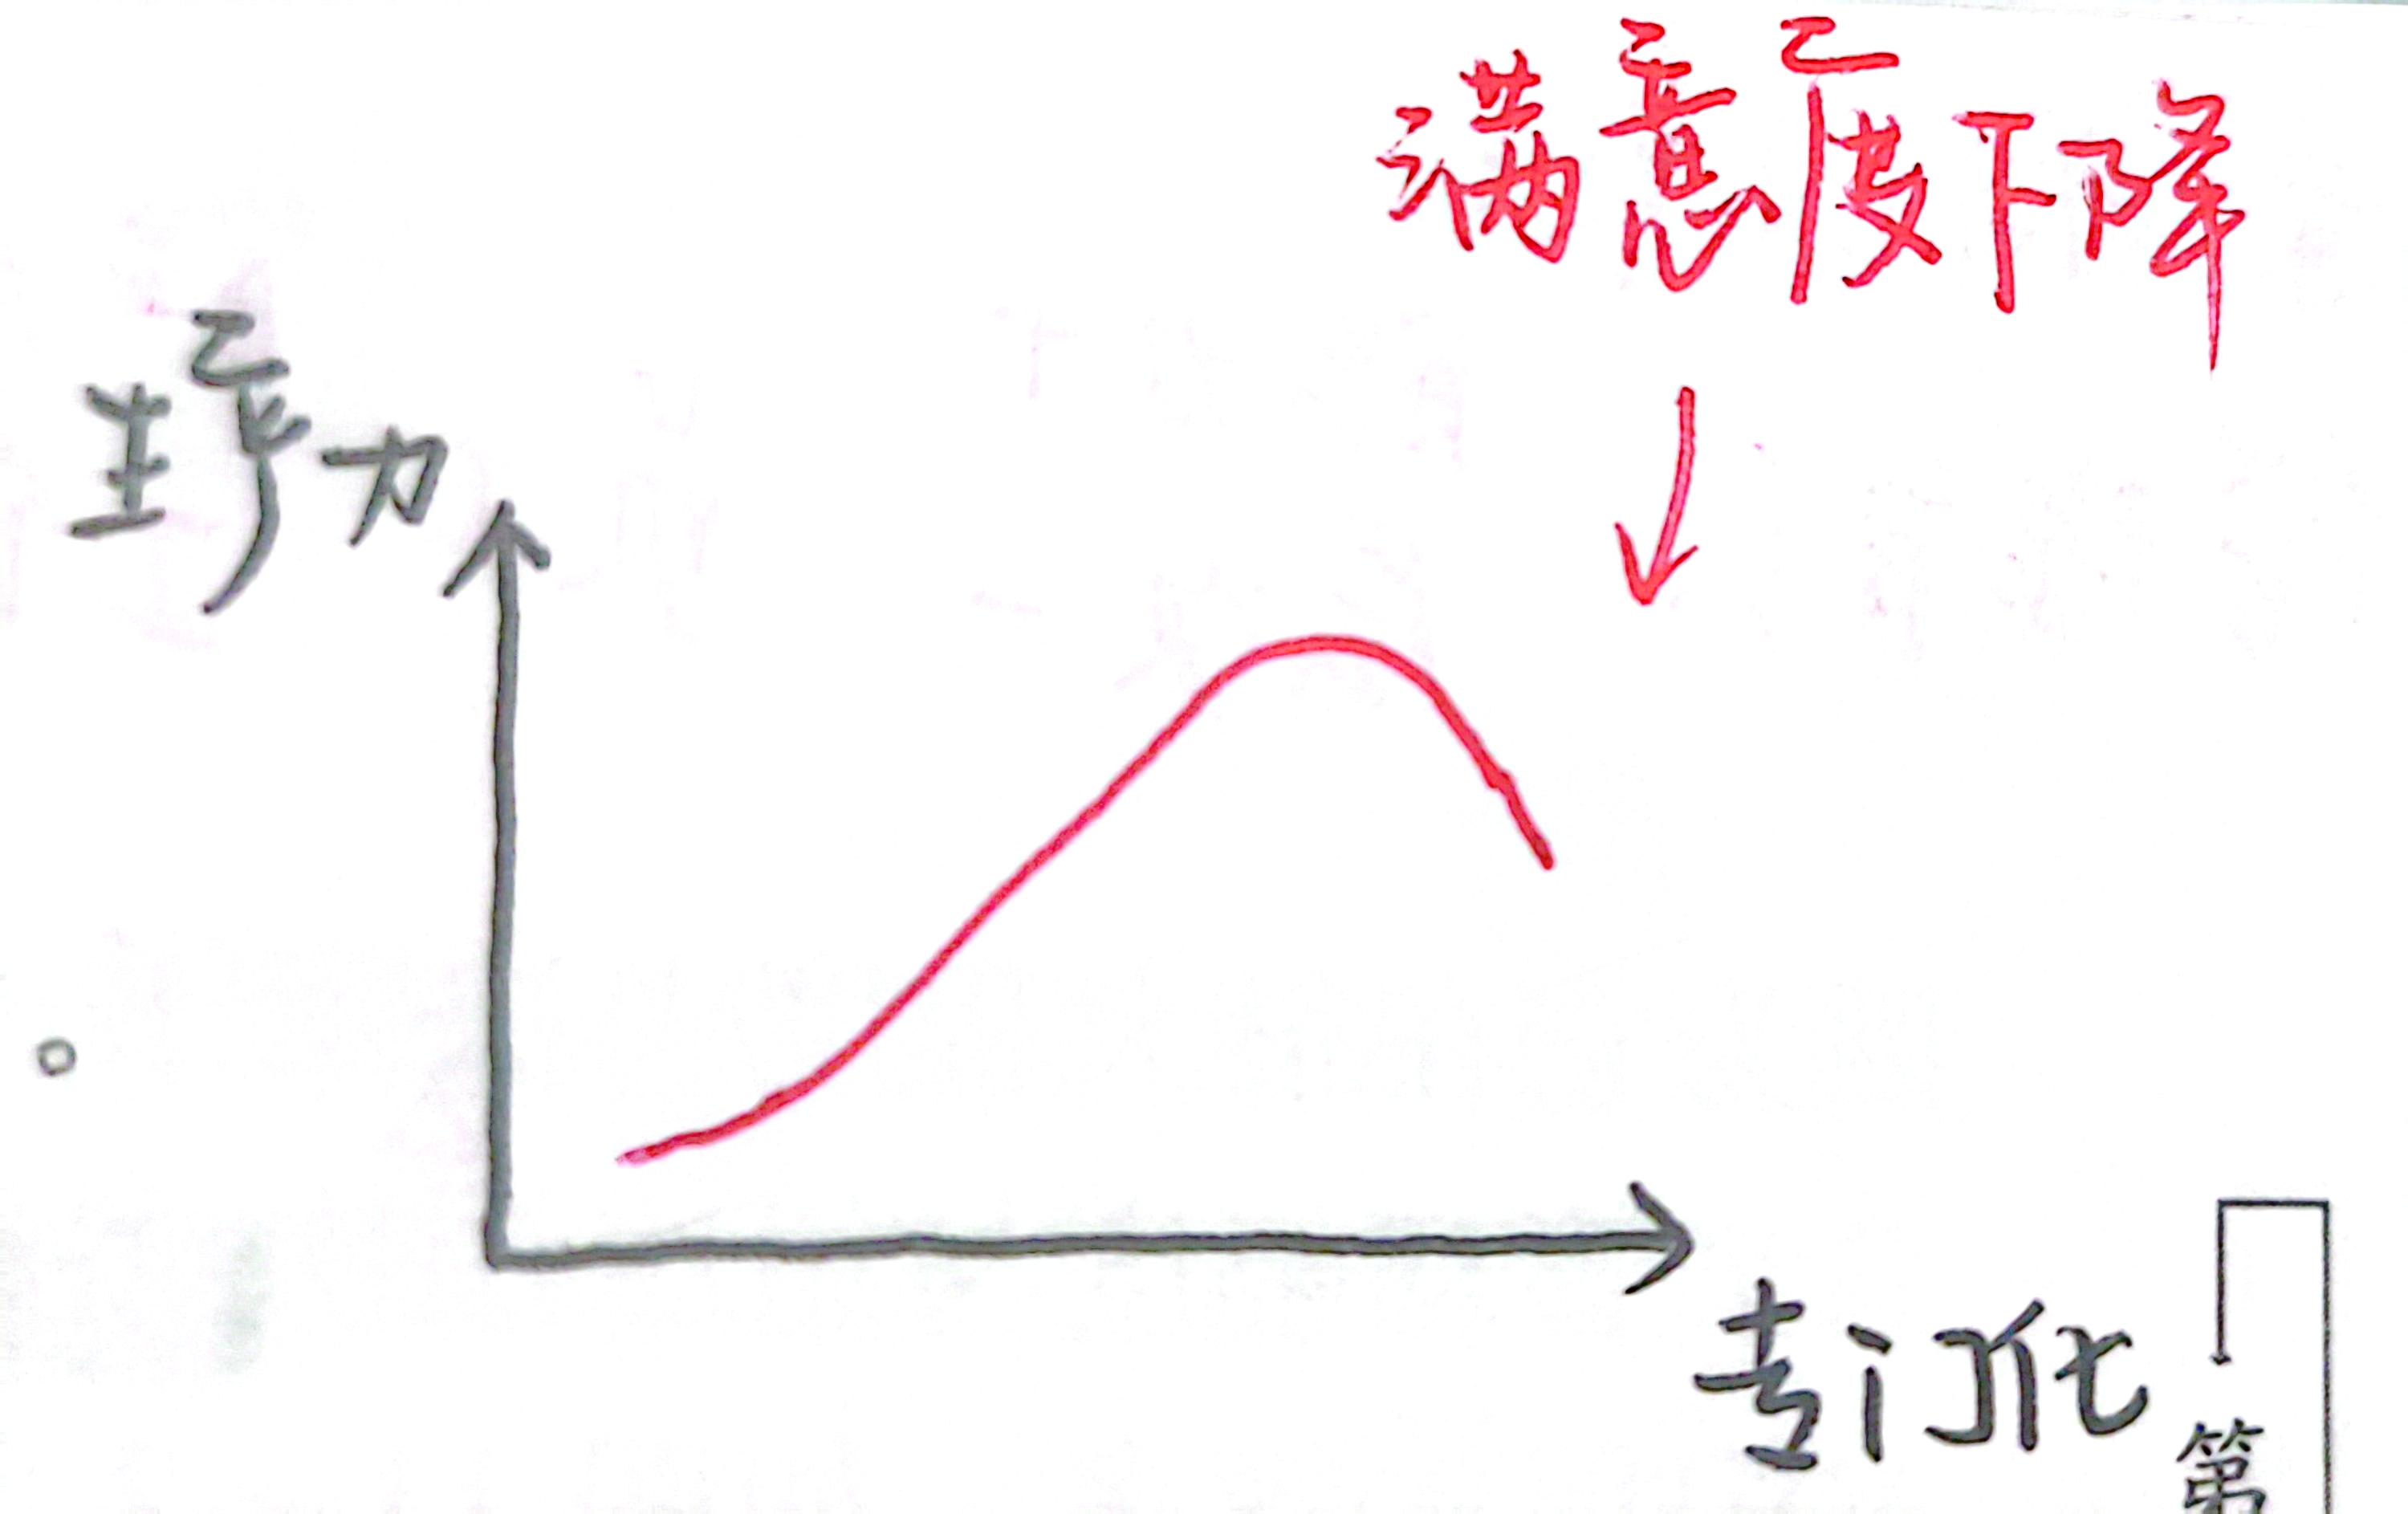 满意度下降
生产力
专门化
第